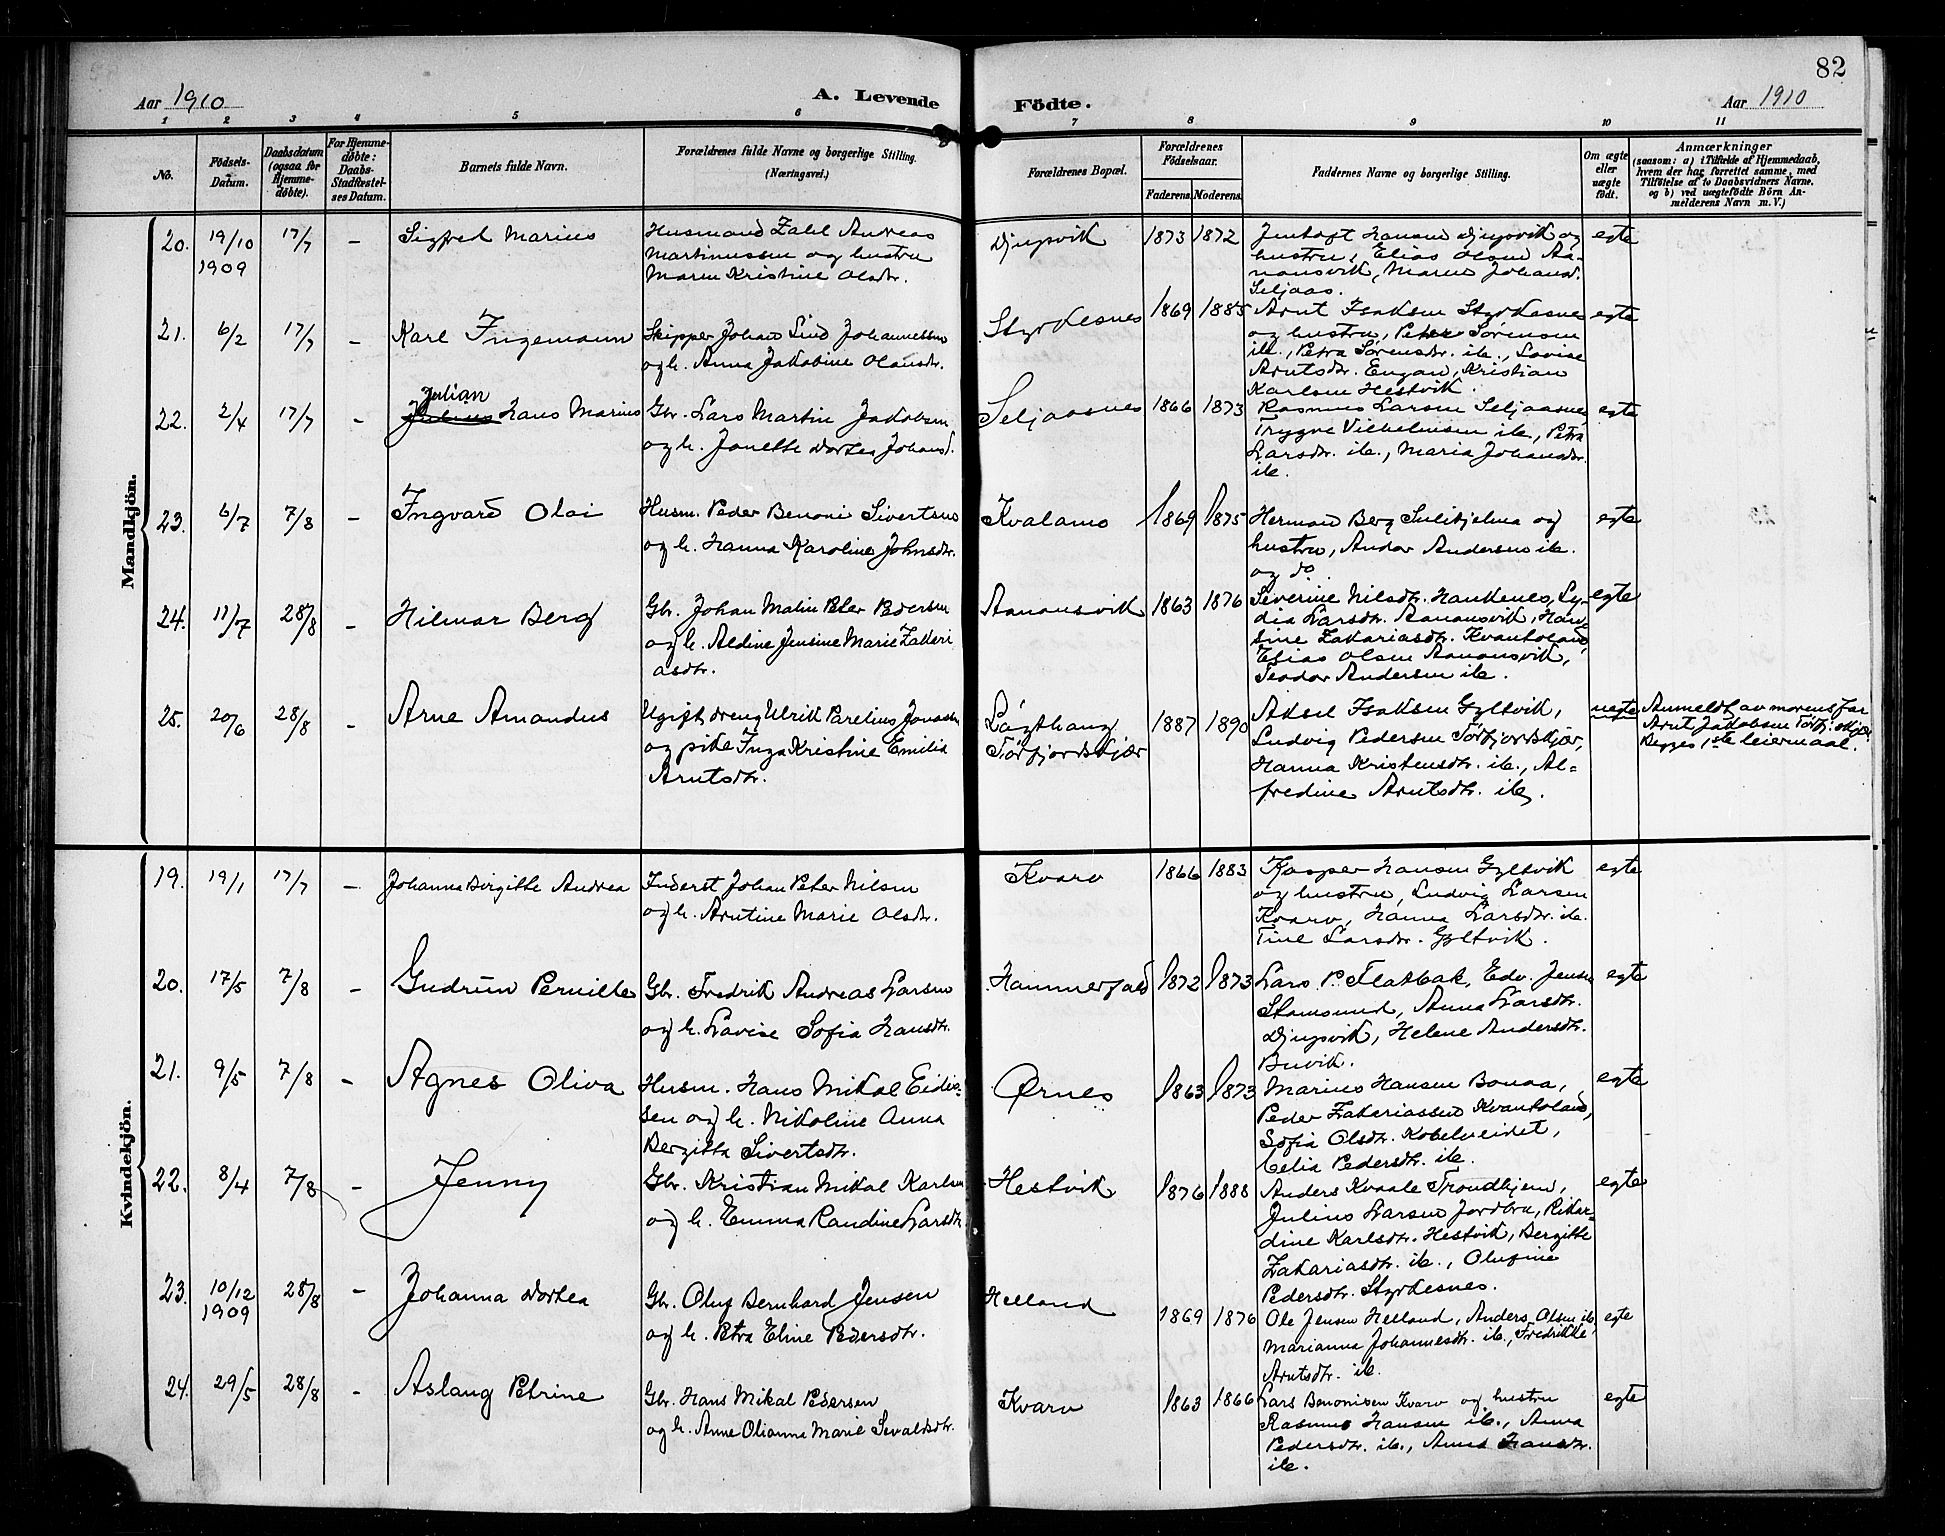 82
Aar 1910
A. Levende Födte.
Aar 1910
1 2 3 4 5 6 7 8 9 10 11
No.
Födsels-
Datum.
Daabsdatum
(ogsaa for
Hjemme-
döbte).
For Hjemme-
döbte:
Daabs-
Stadfæstel-
ses Datum.
Barnets fulde Navn.
Forældrenes fulde Navne og borgerlige Stilling.
(Næringsvei.)
Forældrenes Bopæl.
Forældrenes
Födselsaar.
Faderens. Moderens.
Faddernes Navne og borgerlige Stilling.
Om ægte
eller
uægte
födt.
Anmærkninger
(saasom: a) i Tilfælde af Hjemmedaab,
hvem der har forrettet samme, med
Tilföielse af to Daabsvidners Navne,
og b) ved uægtefödte Börn An-
melderens Navn m. V.)
Mandkjön.
20. 19/10 1909 17/7 – Sigfred Marius
Husmand Zahl Andreas
Martinussen og hustru
Maren Kristine Olsdtr.
Djupvik 1873 1872
Jentoft Hansen Djupvik og
hustru, Elias Olsen Aa-
nonsvik, Maren Johansd.
Seljaas.
egte
21. 6/2 17/7 – Karl Ingemann
Skipper Johan Lind Johannessen
og h. Anna Jakobine Olausdr.
Styrkesnes 1869 1885
Arnt Isaksen Styrkesnes
og hustru, Peter Sørensen
ib., Petra Sørensdr. ib., Lovise
Arntsdtr. Engan, Kristian
Karlsen Hestvik.
egte
22. 2/4 17/7 – Julian Hans Marius
Gbr. Lars Martin Jakobsen
og h. Janette Dortea Johansd.
Seljaasnes 1866 1873
Rasmus Larsen Seljaasnes,
Trygve Vilhelmsen ib., Petra
Larsdtr. ib., Maria Johansdtr.
ib.
egte
23. 6/7 7/8 – Ingvard Olai
Husm. Peder Benoni Sivertsen
og h. Hanna Karoline Johnsdtr.
Kvalanes 1869 1875
Herman Berg Sulitjelma og
hustru, Andor Andersen ib.
og do.
egte
24. 11/7 28/8 – Hilmar Berg
Gbr. Johan Malin Peter Pedersen
og h. Aldine Jensine Marie Zakari
asdtr.
Aanonsvik 1863 1876
Severine Nilsdtr. Hankenes, Ly-
dia Larsdtr. Aanonsvik, Han-
sine Zakariasdtr. Kvantoland,
Elias Olsen Aanonsvik,
Teodor Andersen ib.
egte
25. 20/6 28/8 – Arne Amandus
Ugift dreng Ulrik Parelius Jonassen
og pike Inga Kristine Emilia
Arntsdtr.
Lagthaug
Tørfjordskjær
1887 1890
Aksel Isaksen Gyltvik,
Ludvig Pedersen Tørfjordskjær,
Hanna Kristensdtr. ib., Al-
fredine Arntsdtr. ib.
uegte
Anmeldt av morens far
Arnt Jakobsen Tørfj.skjær
Begges 1ste leiermaal.
Kvindekjön.
19. 19/1 17/7 – Johanna Birgitte Andrea
Inderst Johan Peter Nilsen
og h. Arntine Marie Olsdtr.
Kvarv 1866 1883
Kasper Hansen Gyltvik
og hustru, Ludvig Larsen
Kvarv, Hanna Larsdtr. ib.
Tine Larsdtr. Gyltvik.
egte
20. 17/5 7/8 – Gudrun Pernille
Gbr. Fredrik Andreas Larsen
og h. Lovise Sofia Hansdtr.
Hammerfald 1872 1873
Lars P. Flatbak, Edv. Jensen
Stamsund, Anna Larsdtr.
Djupvik, Helene Andersdtr.
Buvik.
egte
21. 9/5 7/8 – Agnes Oliva
Husm. Hans Mikal Eidis-
sen og h. Nikoline Anna
Bergitta Sivertsdtr.
Ørnes 1863 1873
Marius Hansen Bonaa,
Peder Zakariassen Kvantoland,
Sofia Olsdtr. Kobelveidet,
Celia Pedersdtr. ib.
egte
22. 8/4 7/8 – Jenny
Gbr. Kristian Mikal Karlsen
og h. Emma Randine Larsdtr
Hestvik 1876 1888
Anders Kvaale Trondhjem,
Julius Larsen Jordbru, Riker-
dine Karlsdtr. Hestvik, Bergitte
Zakariasdtr. ib., Olufine
Pedersdtr. Styrkesnes.
egte
23. 10/12 1909 28/8 – Johanna Dortea
Gbr. Oluf Bernhard Jensen
og h. Petra Eline Pedersdtr.
Helland 1869 1876
Ole Jensen Helland, Anders Olsen ib.
Marianna Johannesdtr. ib., Fredrikke
Arntsdtr. ib.
egte
24. 29/5 28/8 – Aslaug Petrine
Gbr. Hans Mikal Pedersen
og h. Anne Olianna Marie Sevaldsdtr.
Kvarv 1863 1866
Lars Benonisen Kvarv og hustru
Rasmus Hansen ib., Anna
Pedersdtr. ib., Anna Hansdtr.
ib.
egte